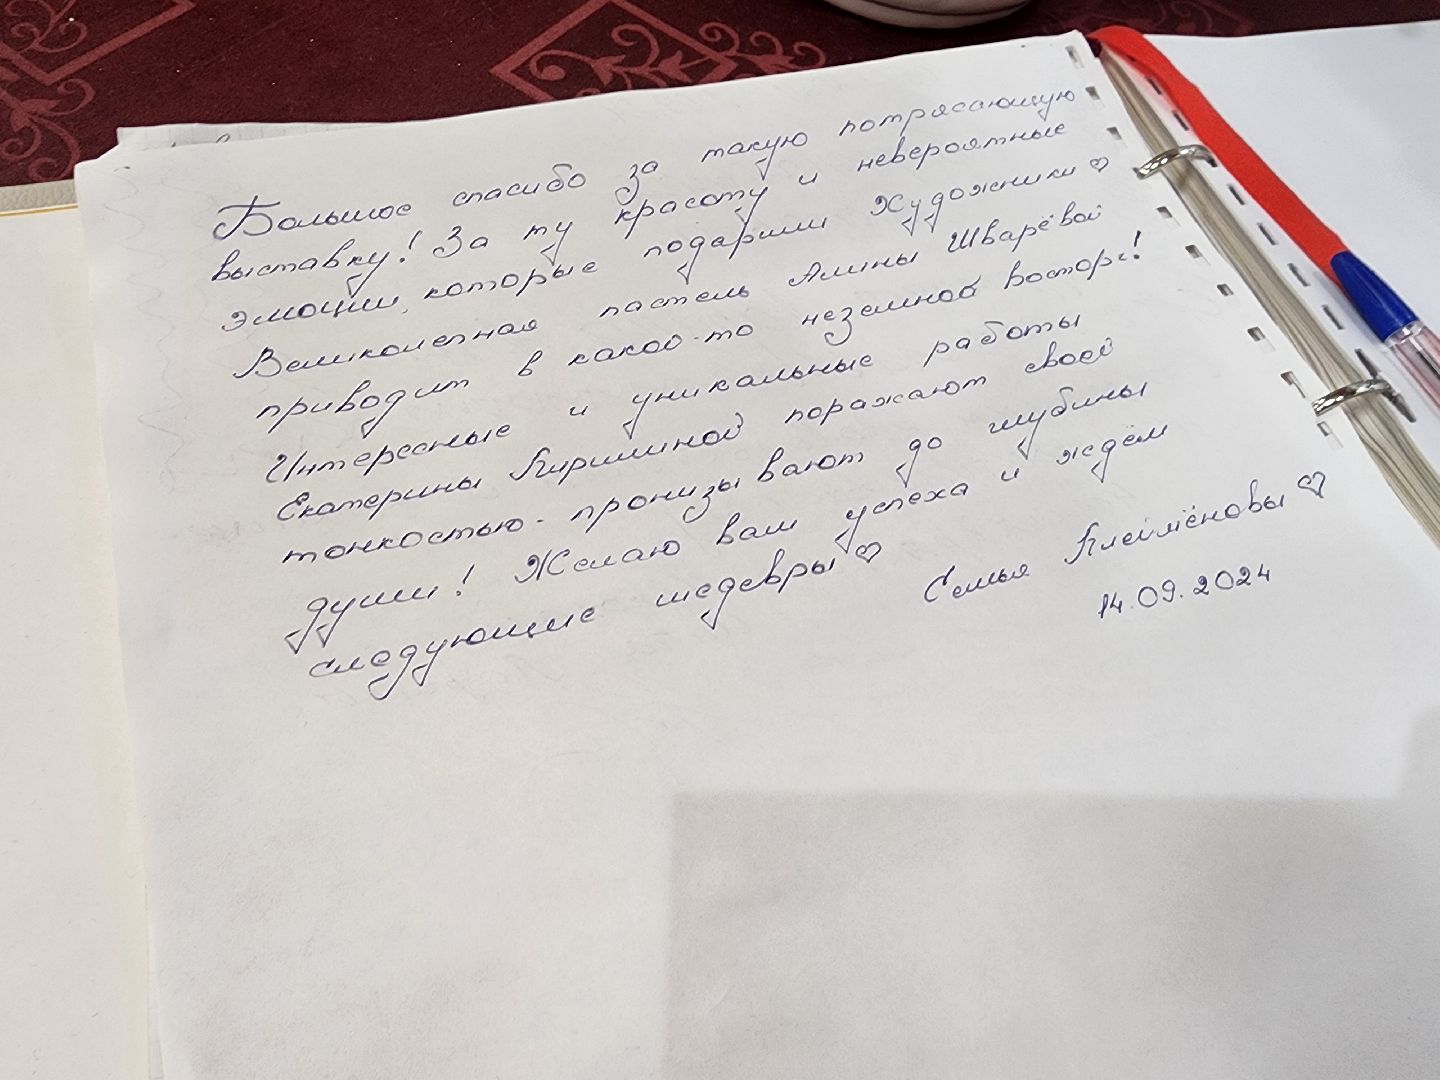 Большое спасибо за такую потрясающую
выставку! За ту красоту и невероятные
эмоции, которые подарили Художники ♡
Великолепная пастель Алины Шварёвой
приводит в какой-то неземной восторг!
Интересные и уникальные работы
Екатерины Кирилиной поражают своей
тонкостью - пронизывают до глубины
души! Желаю вам успеха и ждём
следующие шедевры ♡
Семья Клеймёновы ♡
14.09.2024